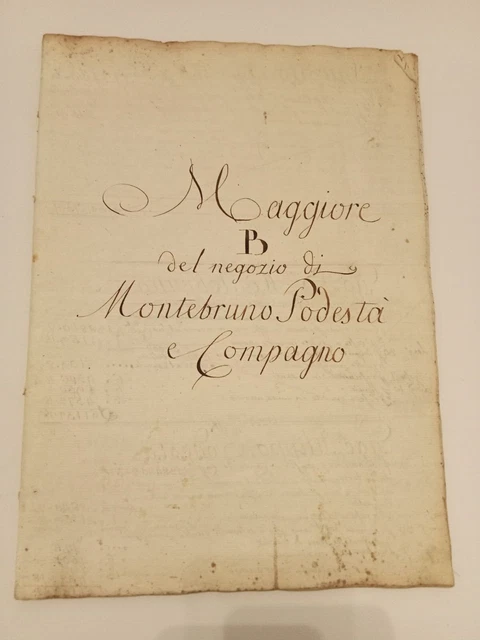 Maggiore
B
del negozio di
Montebruno Podestà
e Compagno